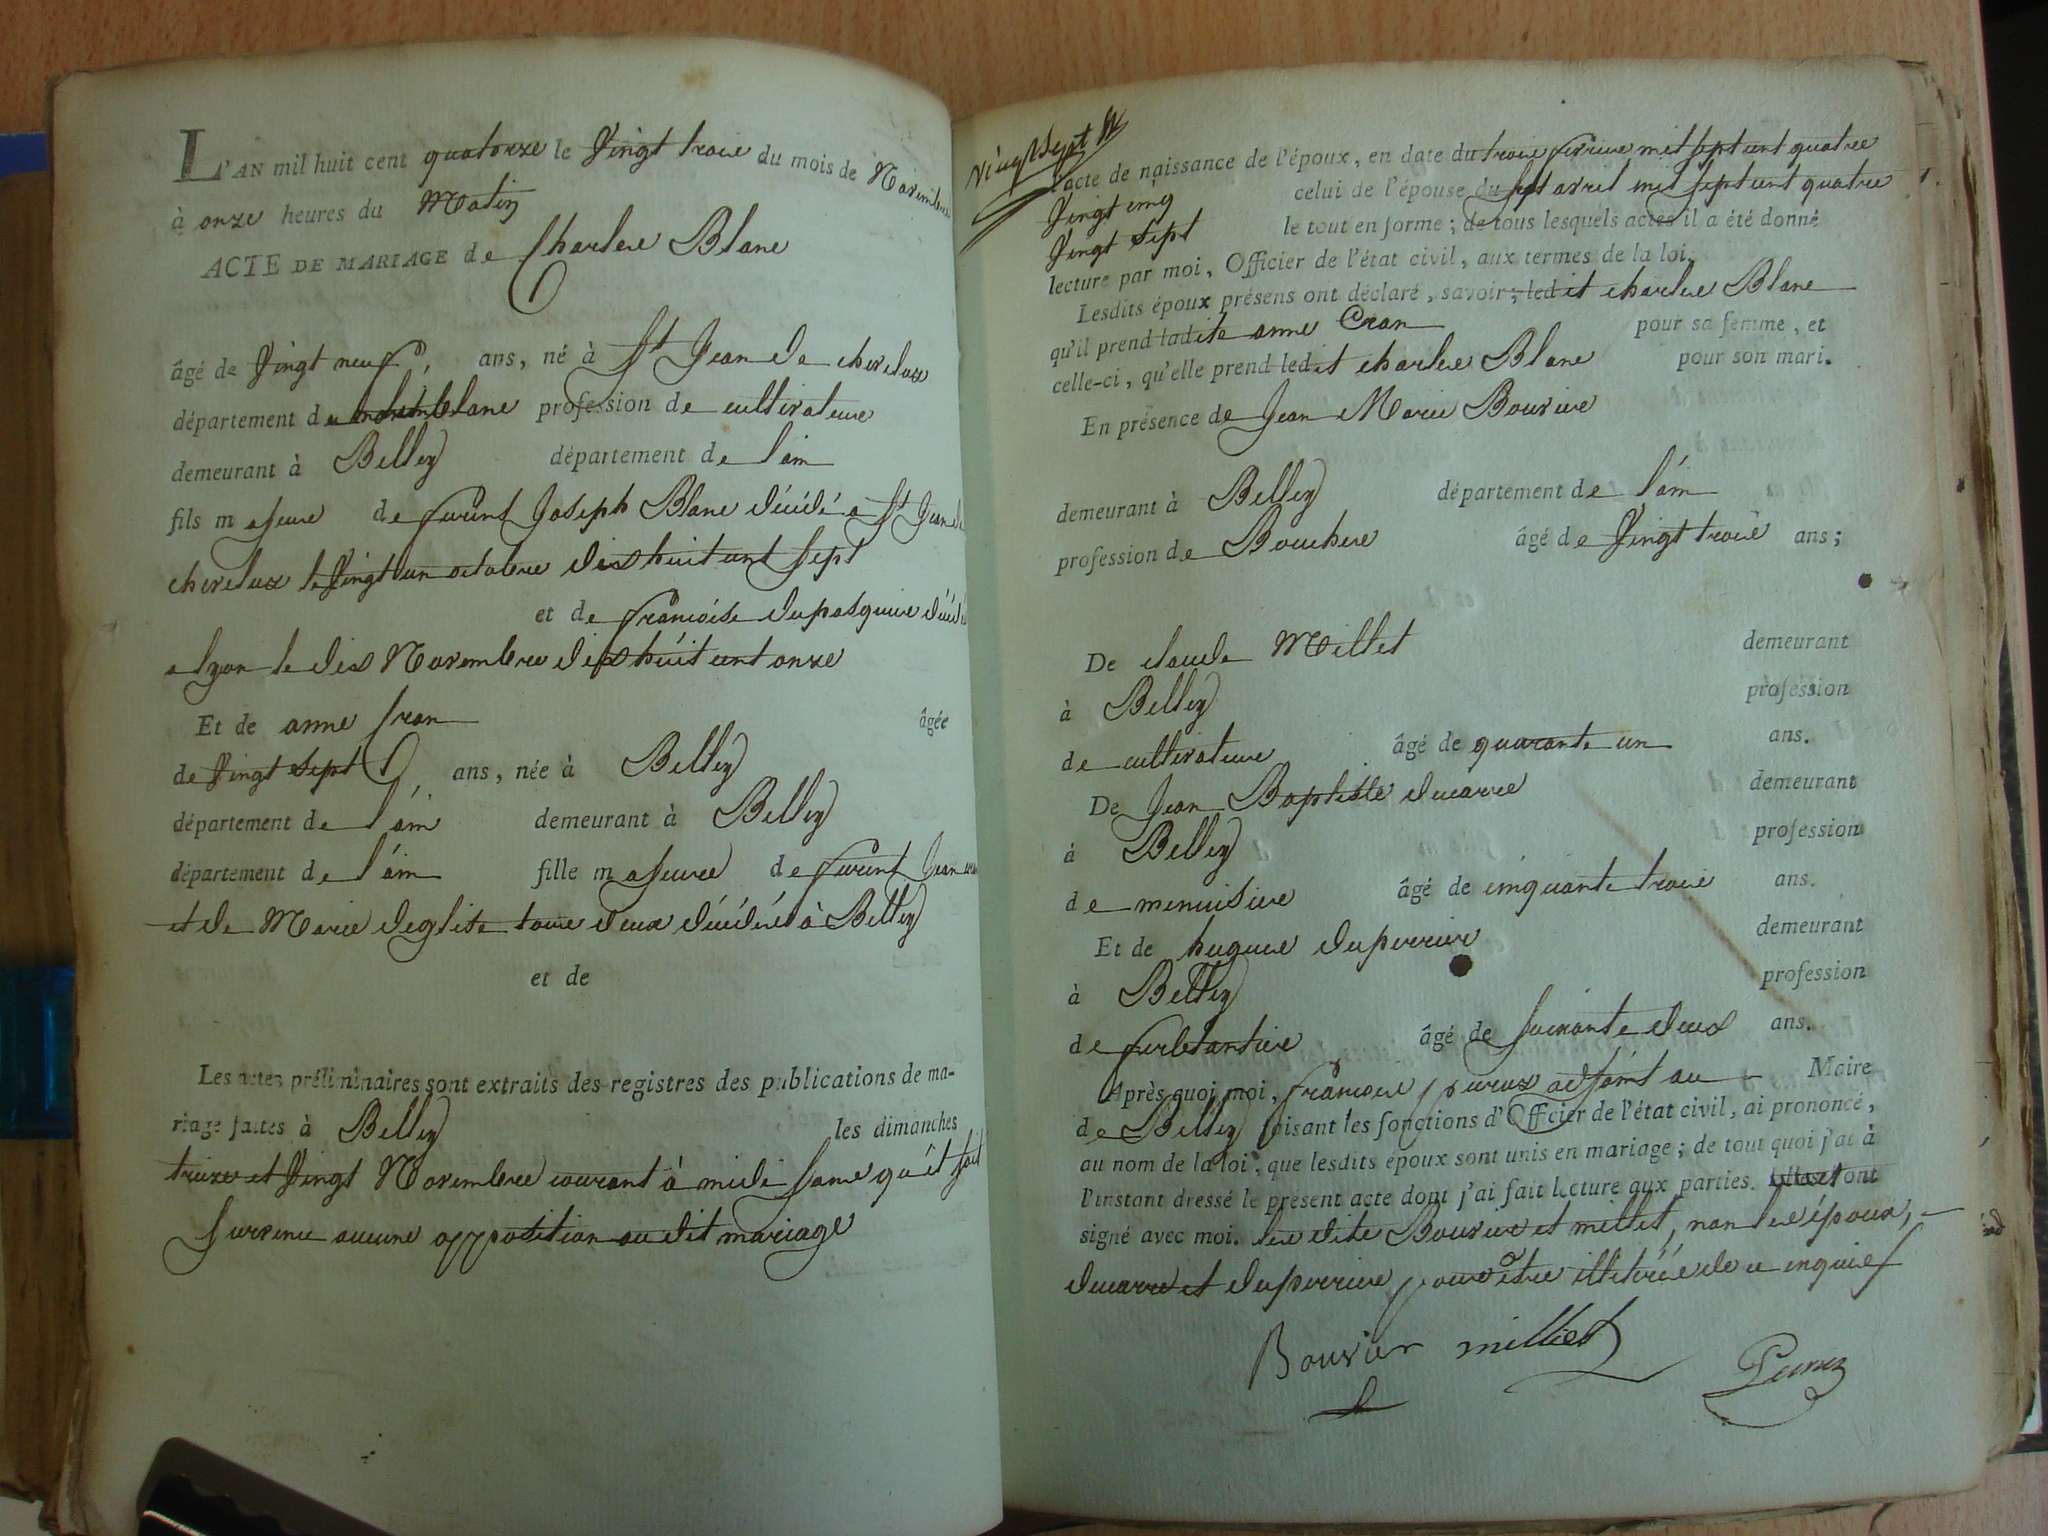 L'AN mil huit cent quatorze le Vingt trois du mois de Novembre
à onze heures du Matin
ACTE DE MARIAGE de Charles Blanc
âgé de Vingt neuf ans, né à St Jean de chevelux
département du montblanc profession de cultivateur
demeurant à Belley département de l'ain
fils majeur de furent Joseph Blanc décédé a St Jean de
chevelux le Vingt un octobre dix huit cent sept
et de francoise dupasquier décédé
a lyon le dix Novembre dix huit cent onze
Et de anne Cran âgée
de Vingt sept ans, née à Belley
département de l'ain demeurant à Belley
département de l'ain fille majeure de furent Jean
et de Marie deglise tous deux décédés à Belley
et de
Les actes préliminaires sont extraits des registres des publications de ma-
riage faites à Belley les dimanches
treize et Vingt Novembre courant à midi sans qu'il soit
survenu aucune opposition au dit mariage
Vingt sept
l'acte de naissance de l'époux, en date du trois fevrier mil sept cent quatre
Vingt cinq celui de l'épouse du sept avril mil sept cent quatre
Vingt sept le tout en forme ; de tous lesquels actes il a été donné
lecture par moi, Officier de l'état civil, aux termes de la loi.
Lesdits époux présens ont déclaré, savoir ; ledit charles Blanc
qu'il prend ladite anne Cran pour sa femme, et
celle-ci, qu'elle prend ledit charles Blanc pour son mari.
En présence de Jean Marie Bouvier
demeurant à Belley département de l'ain
profession de Boucher âgé de Vingt trois ans ;
De claude Millet demeurant
à Belley profession
de cultivateur âgé de quarante un ans.
De Jean Baptiste ducarre demeurant
à Belley profession
de menuisier âgé de cinquante trois ans.
Et de hugues duperrier demeurant
à Belley profession
de ferblantier âgé de soixante deux ans.
Après quoi moi, francois peroux adjoint au Maire
de Belley faisant les fonctions d'Officier de l'état civil, ai prononcé,
au nom de la loi, que lesdits époux sont unis en mariage ; de tout quoi j'ai à
l'instant dressé le présent acte dont j'ai fait lecture aux parties. ont
signé avec moi. les dits Bouvier et millet, non les époux,
ducarre et duperrier pour être illitérés de ce enquis
Bouvier milliet